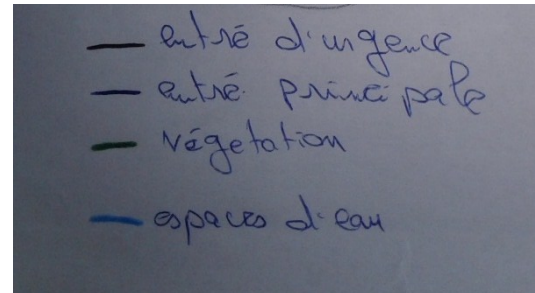 entré d'urgence
entré principale
végetation
espaces d'eau